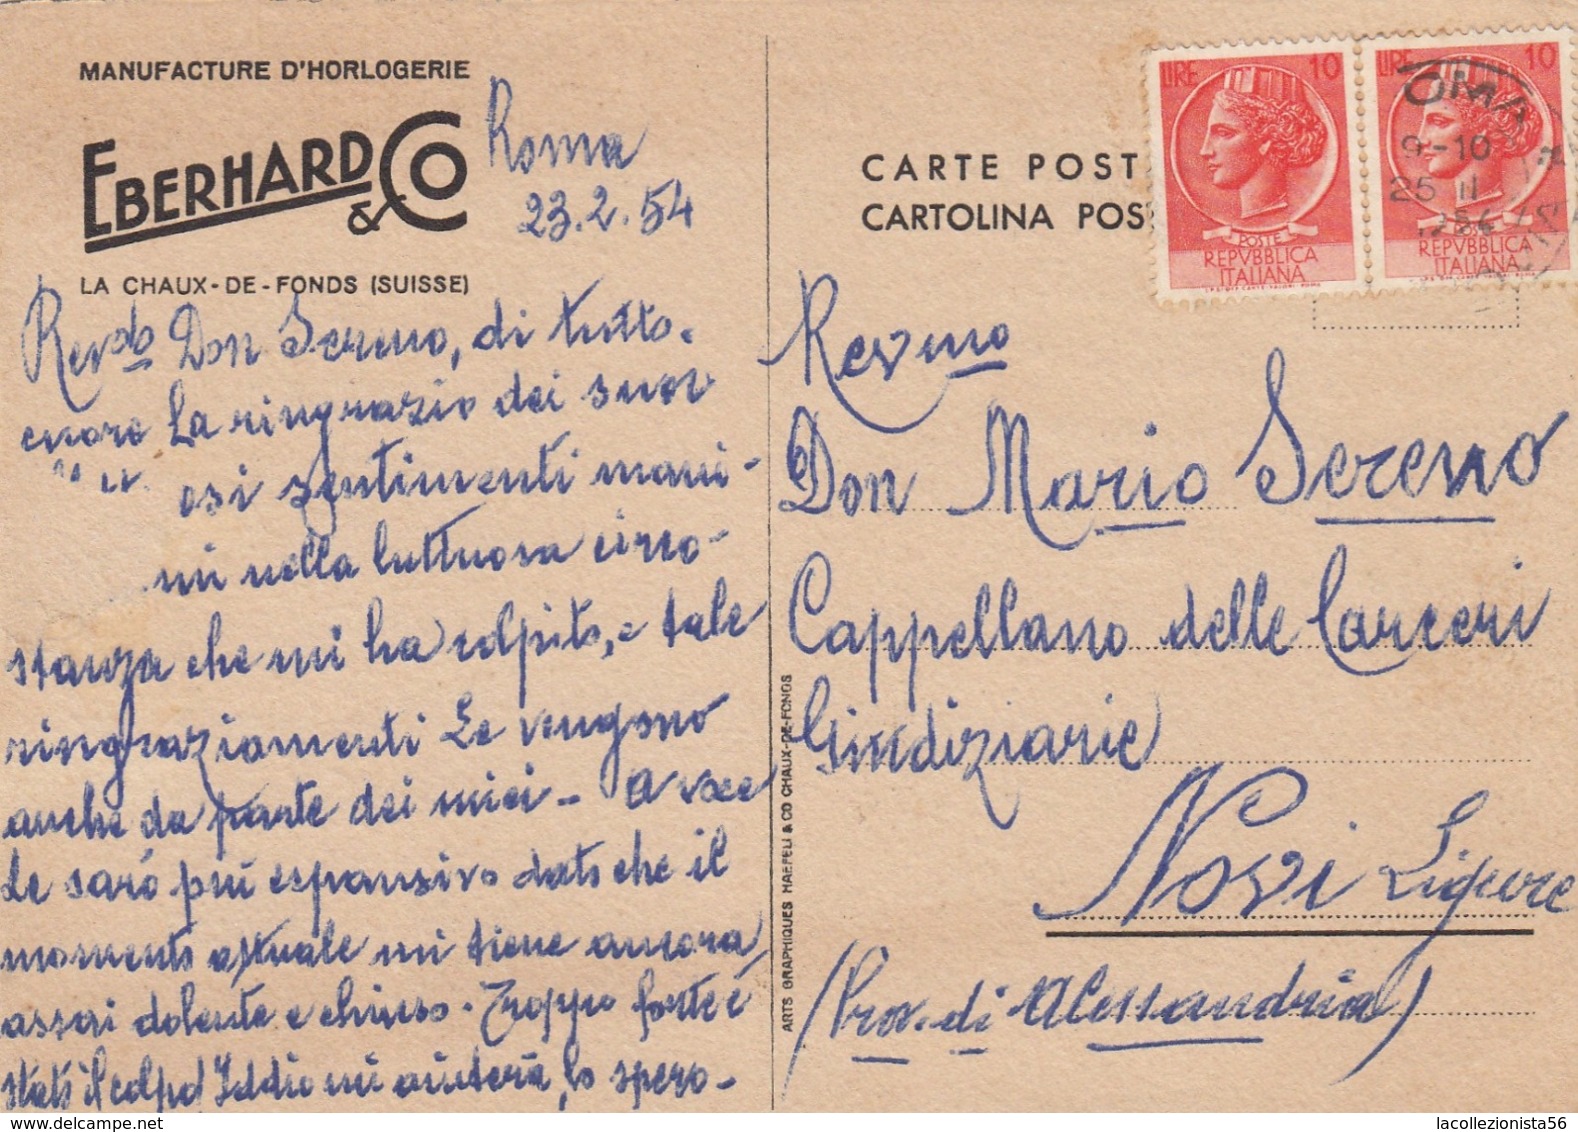 MANUFACTURE D'HORLOGERIE
EBERHARD & CO
LA CHAUX-DE-FONDS (SUISSE)
Roma
23.2.54
Revdo Don Sereno, di tutto
cuore La ringrazio dei suoi
osi sentimenti mani-
mi nella luttuosa circo-
stanza che mi ha colpito, e tale
ringraziamenti Le vengono
anche da parte dei miei - A voce
Le sarò più espansivo dato che il
momento attuale mi tiene ancora
assai dolente e chiuso. Troppo forte è
stato il colpo! Iddio mi aiuterà, lo spero-
CARTE POST
CARTOLINA POS
LIRE 10
POSTE
REPVBBLICA
ITALIANA
LIRE 10
REPVBBLICA
ITALIANA
OMA
9-10
25 II
Revmo
Don Mario Sereno
Cappellano delle Carceri
Giudiziarie
Novi Ligure
(Prov. di Alessandria)
ARTS GRAPHIQUES HAEFELI & CO CHAUX-DE-FONDS
lacollezionista56